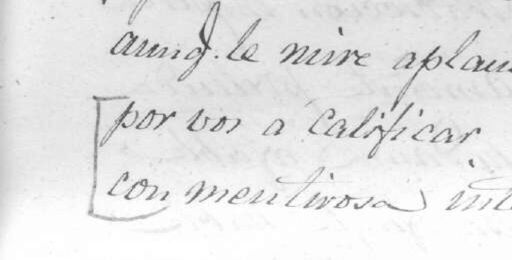 aunq. le mire aplau
por vos a calificar
con mentirosa int